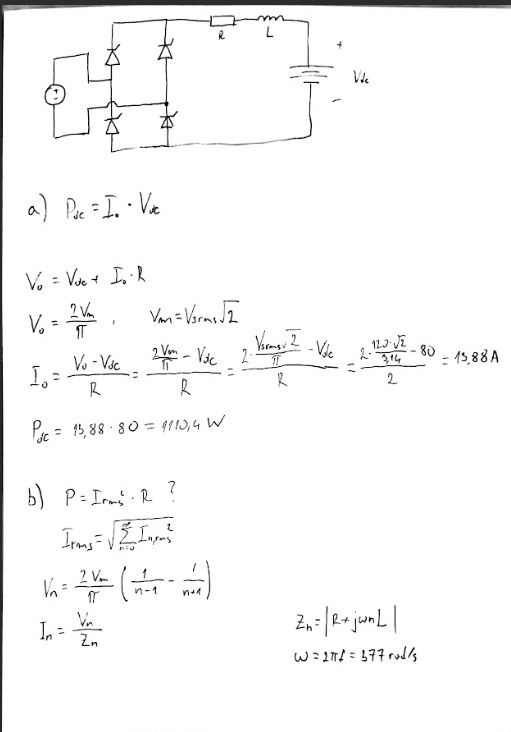 R L
+
Vdc
−
a) Pdc = I₀ · Vdc
V₀ = Vdc + I₀ · R
V₀ = 2Vm/π , Vm = Vsrms√2
I₀ = (V₀ - Vdc)/R = (2Vm/π - Vdc)/R = (2 · Vsrms√2/π - Vdc)/R = (2 · 120·√2/3,14 - 80)/2 = 13,88 A
Pdc = 13,88 · 80 = 1110,4 W
b) P = Irms² · R ?
Irms = √(∑_{n=0}^{∞} In,rms²)
Vn = 2Vm/π (1/(n-1) - 1/(n+1))
In = Vn/Zn
Zn = |R + jωnL|
ω = 2πf = 377 rad/s